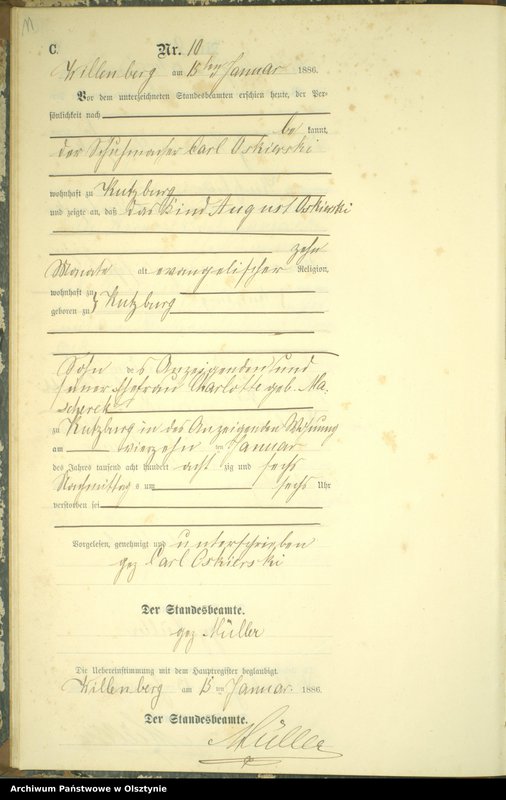 C. Nr. 10
Willenberg am 15ten Januar 1886.
Vor dem unterzeichneten Standesbeamten erschien heute, der Per-
sönlichkeit nach
be kannt,
der Schuhmacher Carl Oskierski
wohnhaft zu Kutzburg
und zeigte an, daß das Kind August Oskierski
zehn
Monate alt evangelischer Religion,
wohnhaft zu
geboren zu Kutzburg
Sohn des Anzeigenden und
seiner Ehefrau Charlotte geb. Ma-
scherek
zu Kutzburg in des Anzeigenden Wohnung
am vierzehnten Januar
des Jahres tausend acht hundert acht zig und sechs
Nachmittags um sechs Uhr
verstorben sei
Vorgelesen, genehmigt und unterschrieben
gez Carl Oskierski
Der Standesbeamte.
gez Müller
Die Uebereinstimmung mit dem Hauptregister beglaubigt.
Willenberg am 15ten Januar 1886.
Der Standesbeamte.
Müller
Archiwum Państwowe w Olsztynie